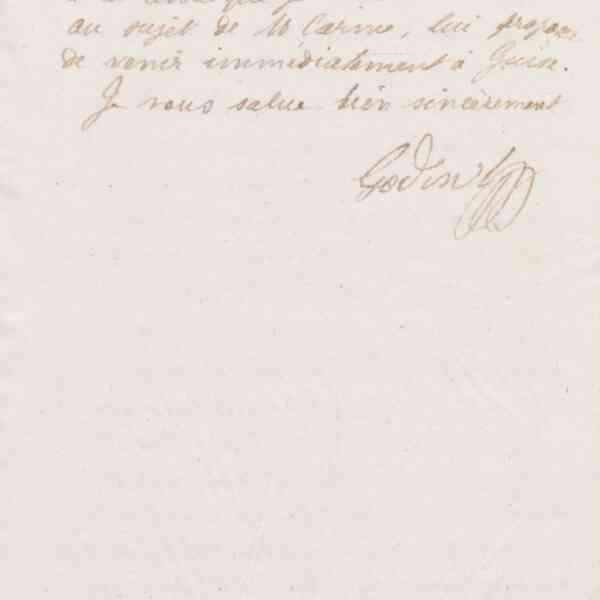 au sujet de M Carine, lui propose
de venir immédiatement à Guise.
Je vous salue bien sincèrement
Godin